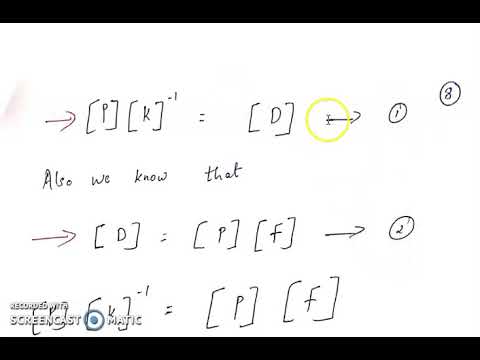 8
→ [P] [K]⁻¹ = [D] → 1'
Also we know that
→ [D] = [P] [F] → 2'
[P] [K]⁻¹ = [P] [F]
RECORDED WITH
SCREENCAST MATIC